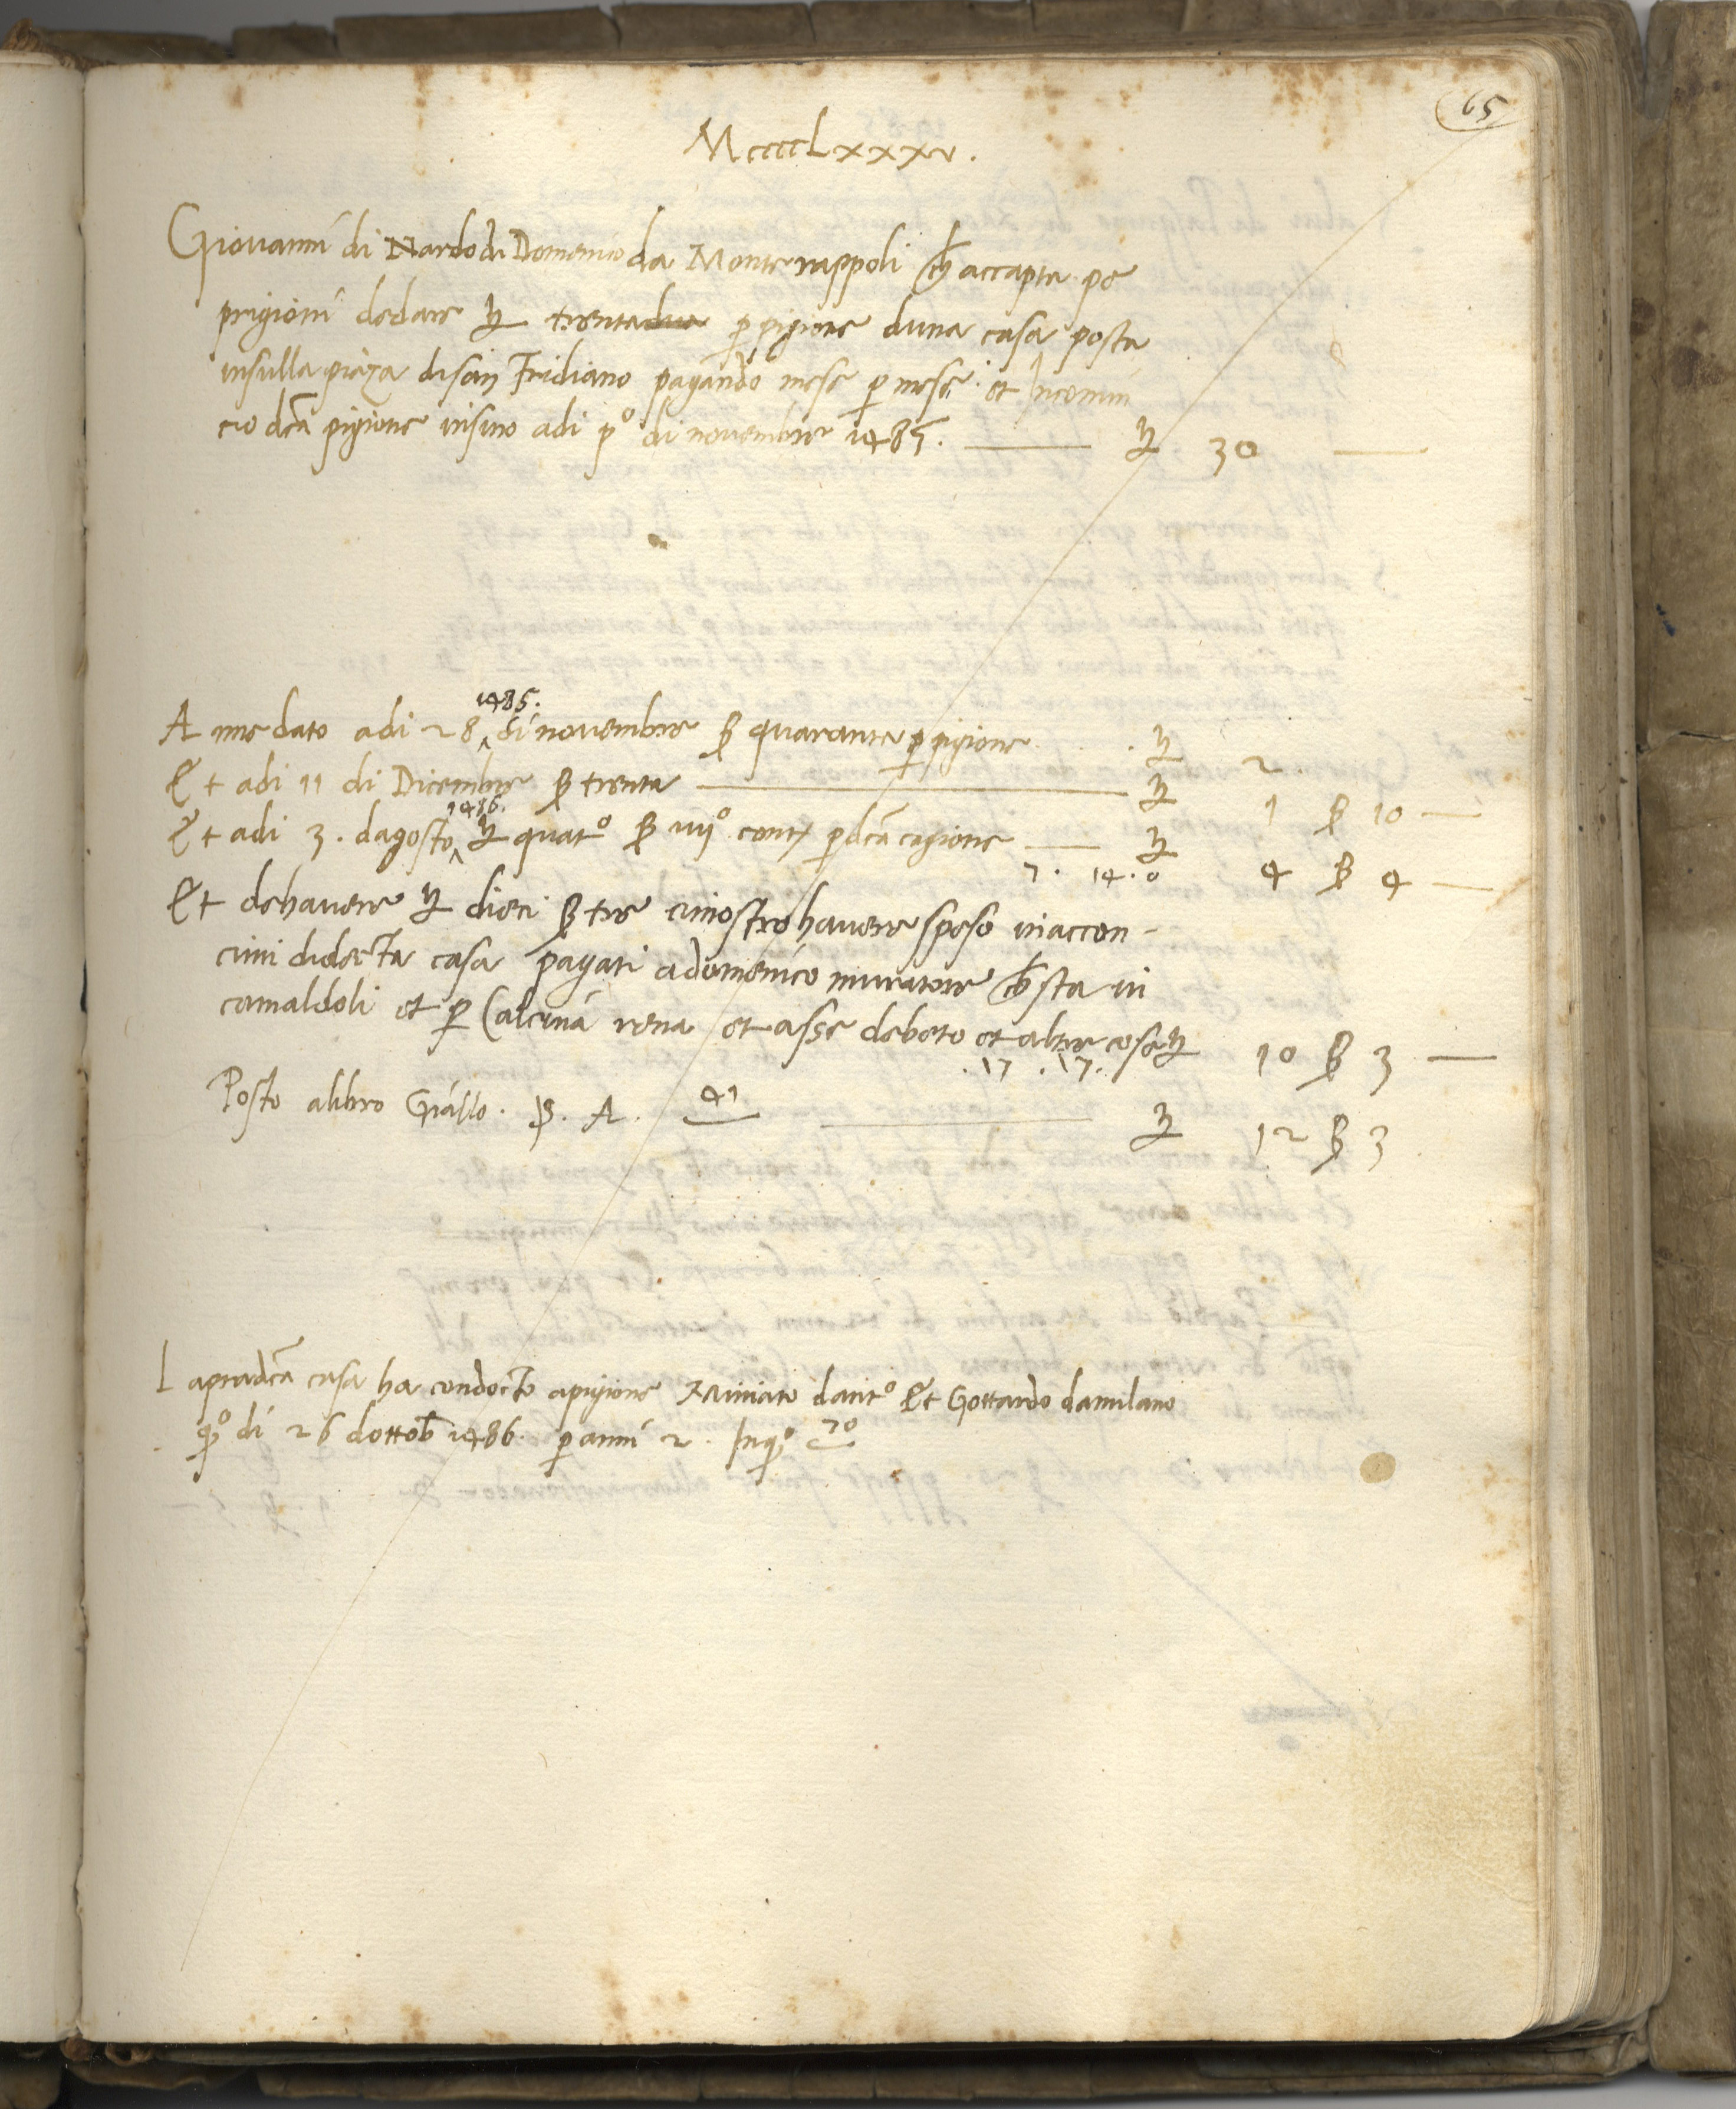 65
MccccLxxxv.
Giovannj di Nardo di Domenico da Monterappoli ch accapta pe
prigionj dedare L trentadua p pigione duna casa posta
insulla piaza disan Fridiano pagando mese p mese. et Incomin
cio dca pigione insino adi po di novembre 1485. L 30
1485.
A me dato adi 28 di novembre β quaranta p pigione L 2
Et adi 11 di Dicembre β trenta L 1 β 10
1486.
Et adi 3. dagosto L quato β iiijo contj p dca cagione L 4 β 4
7. 14. 0
Et dehavere L dieci β tre cimostro havere speso inaccon-
cimi didecta casa pagati adomenico muratore ch sta in
camaldoli et p Calcina rena et asse debeto et altre cose L 10 β 3
.17 .17.
Posto alibro Giallo. S. A. 41 L 12 β 3
Lapradca casa ha condocto apigione Miniato dantº Et Gottardo damilano
qº di 26 dottob 1486. p annj 2. Inqº 70